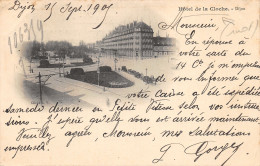 Dijon 15 Sept. 1901
Hôtel de la Cloche. - Dijon
Monsieur
En réponse à
votre carte du
14 Ct je m'empresse
de vous informer que
votre Caisse a été expédiée
Samedi dernier en Petite Vitesse selon vos instruc
tions. J'espère qu'elle vous est arrivée maintenant.
Veuillez agréer, Monsieur, mes salutations